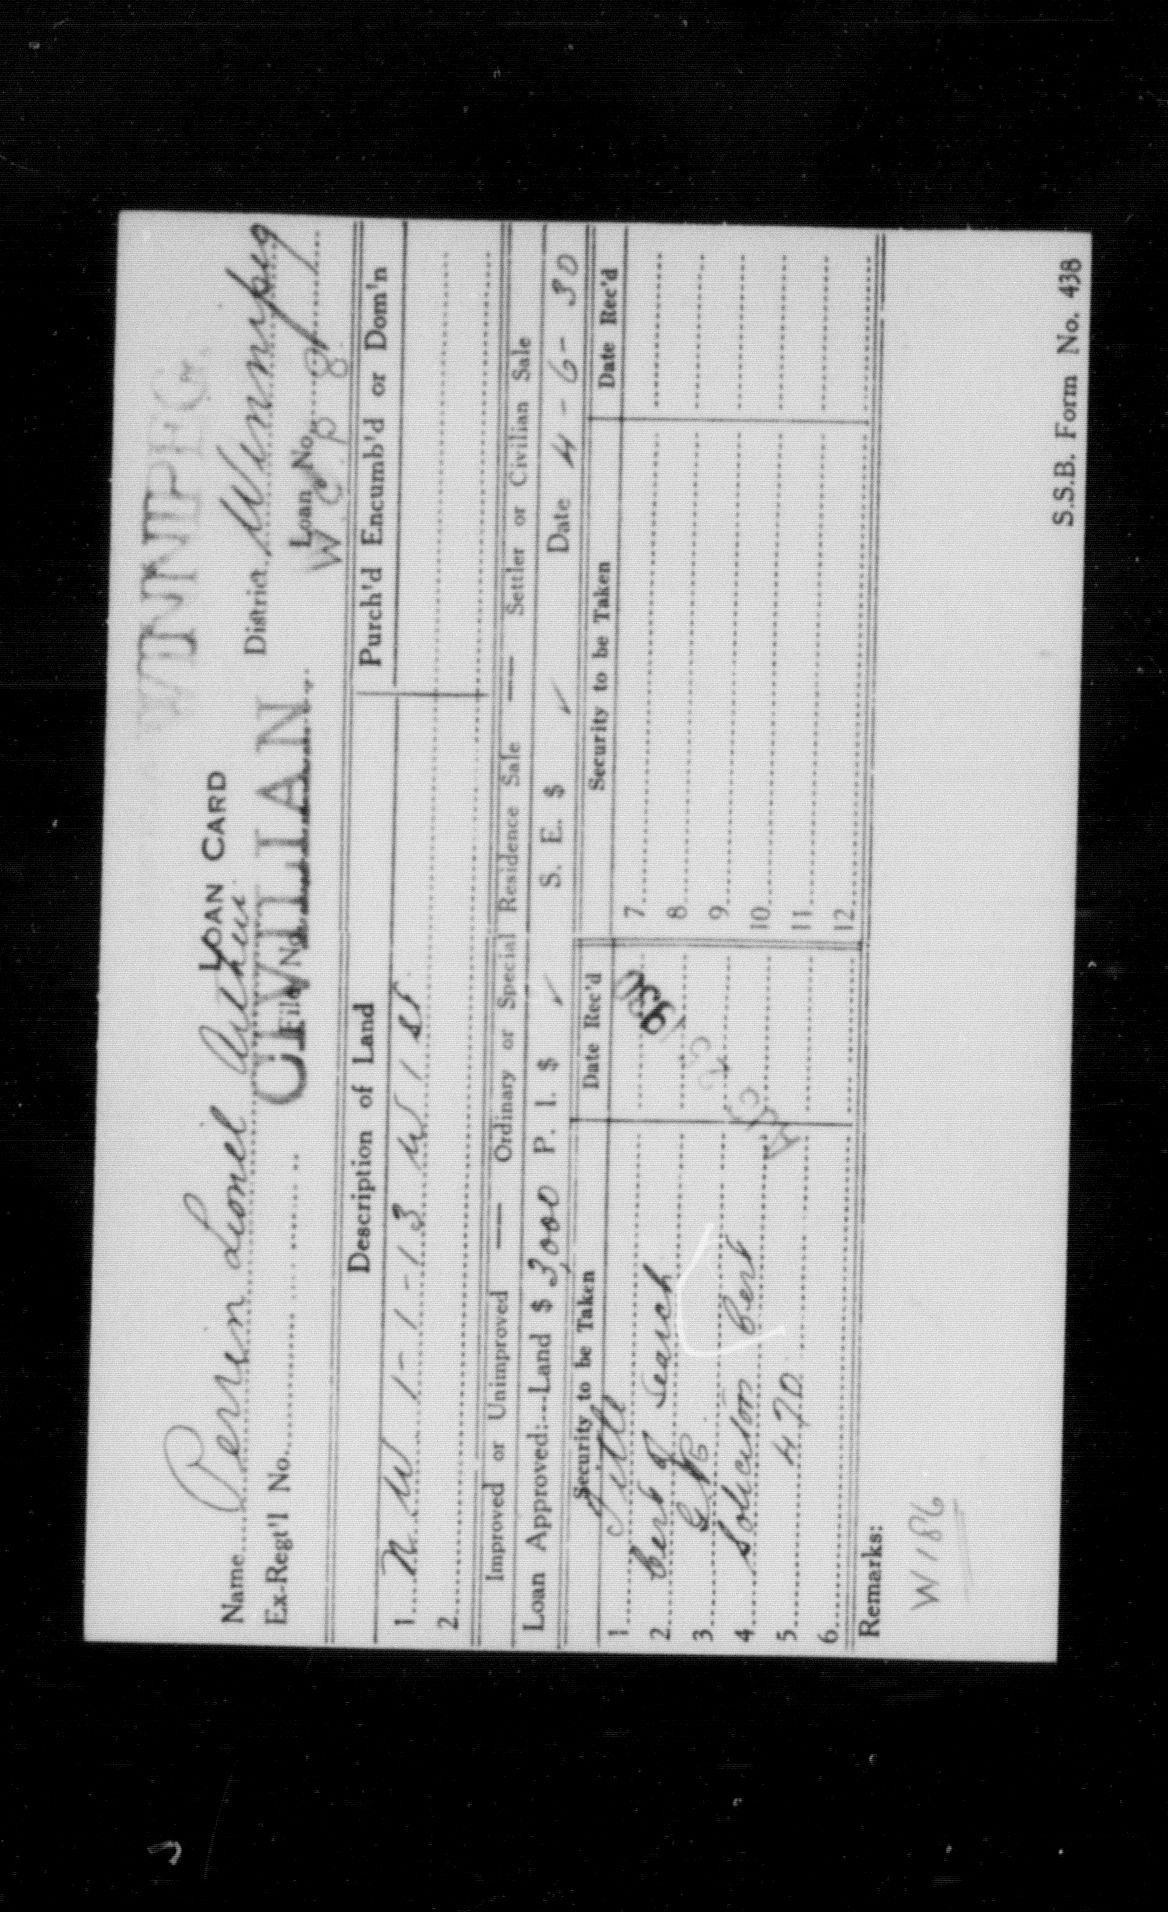 WINNIPEG.
LOAN CARD
Name Perrin Lionel Arthur District Winnipeg
CIVILIAN
Ex-Reg't'l No. File No. Loan No.
W.C.P 8.
Description of Land Purch'd Encumb'd or Dom'n
1 N W 1-1-13 W 1st
2
Improved or Unimproved — Ordinary or Special Residence Sale — Settler or Civilian Sale
Loan Approved:—Land $ 3,000 P. I. $ ✓ S. E. $ ✓ Date 4-6-30
Security to be Taken Date Rec'd Security to be Taken Date Rec'd
1 Title 7
2 Cert of Search 8
3 9
4 Solicitors Cert 10
5 470 11
6 12
Remarks:
W186
S.S.B. Form No. 438